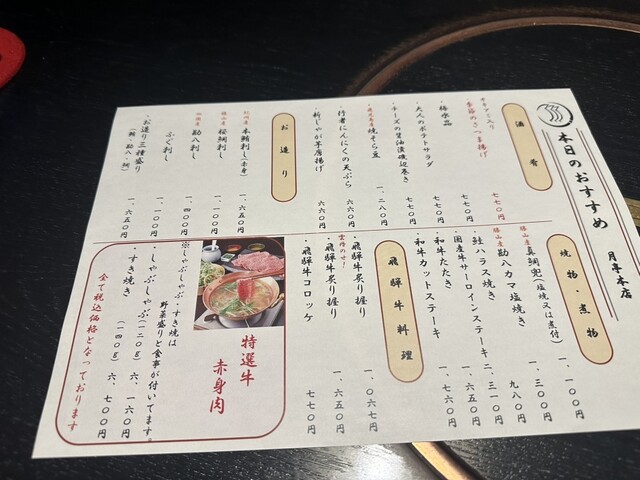 本日のおすすめ
月亭本店
酒肴
季節のさつま揚げ 七七〇円
七七〇円
大人のポテトサラダ 七七〇円
・チーズの醤油漬磯辺巻き 七七〇円
焼そら豆 一、二八〇円
・行者にんにくの天ぷら 六六〇円
・新じゃが芋唐揚げ 六六〇円
お造り
本鮪刺し(赤身) 一、六五〇円
桜鯛刺し
勘八刺し
ふぐ刺し 一、一〇〇円
・お造り三種盛り 一、六五〇円
焼物・煮物
真鯛兜(塩焼又は煮付) 一、一〇〇円
勘八カマ塩焼き 一、三〇〇円
・鮭ハラス焼き 九八〇円
・国産牛サーロインステーキ 二、三一〇円
・和牛たたき 一、六五〇円
・和牛カットステーキ 一、七六〇円
飛騨牛料理
・飛騨牛炙り握り 一、〇六七円
雲丹のせ!
・飛騨牛炙り握り 一、六五〇円
・飛騨牛コロッケ 七七〇円
特選牛
赤身肉
※しゃぶしゃぶ・すき焼は
野菜盛りと食事が付いてます。
・しゃぶしゃぶ(一二〇g) 六、一六〇円
・すき焼き(一四〇g) 六、七〇〇円
全て税込価格となっております